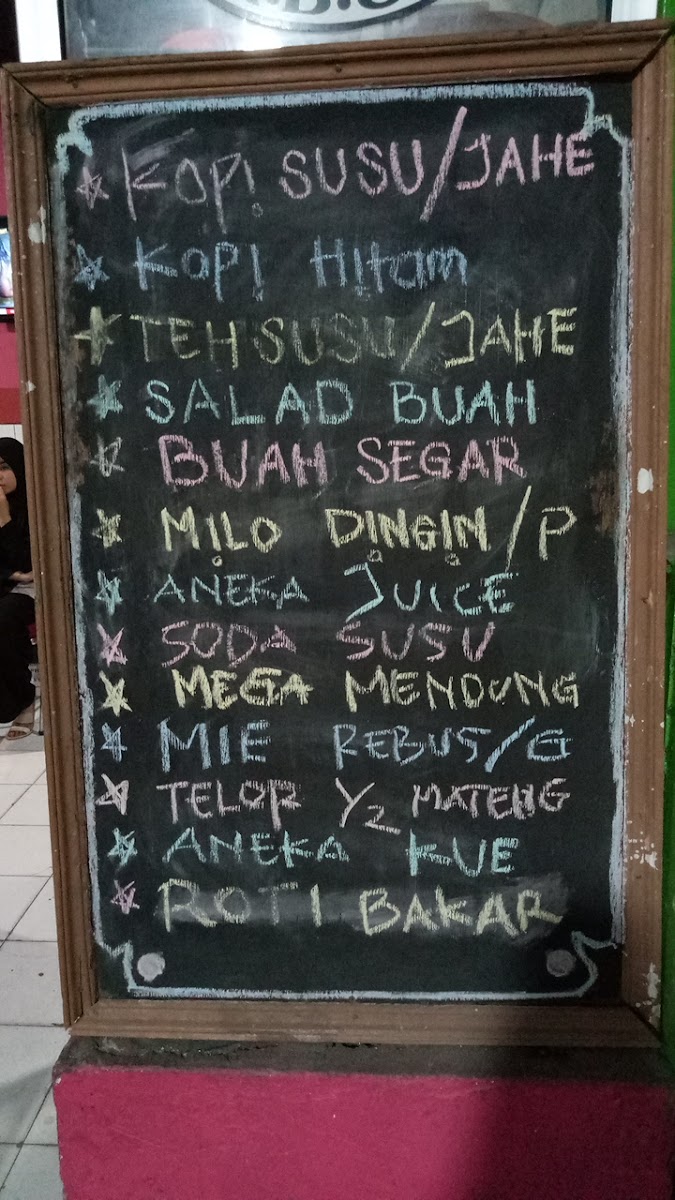 KOPI SUSU/JAHE
KOPI HITAM
TEH SUSU/JAHE
SALAD BUAH
BUAH SEGAR
MILO DINGIN/P
ANEKA JUICE
SODA SUSU
MEGA MENDUNG
MIE REBUS/G
TELOR Y2 MATENG
ANEKA KUE
ROTI BAKAR